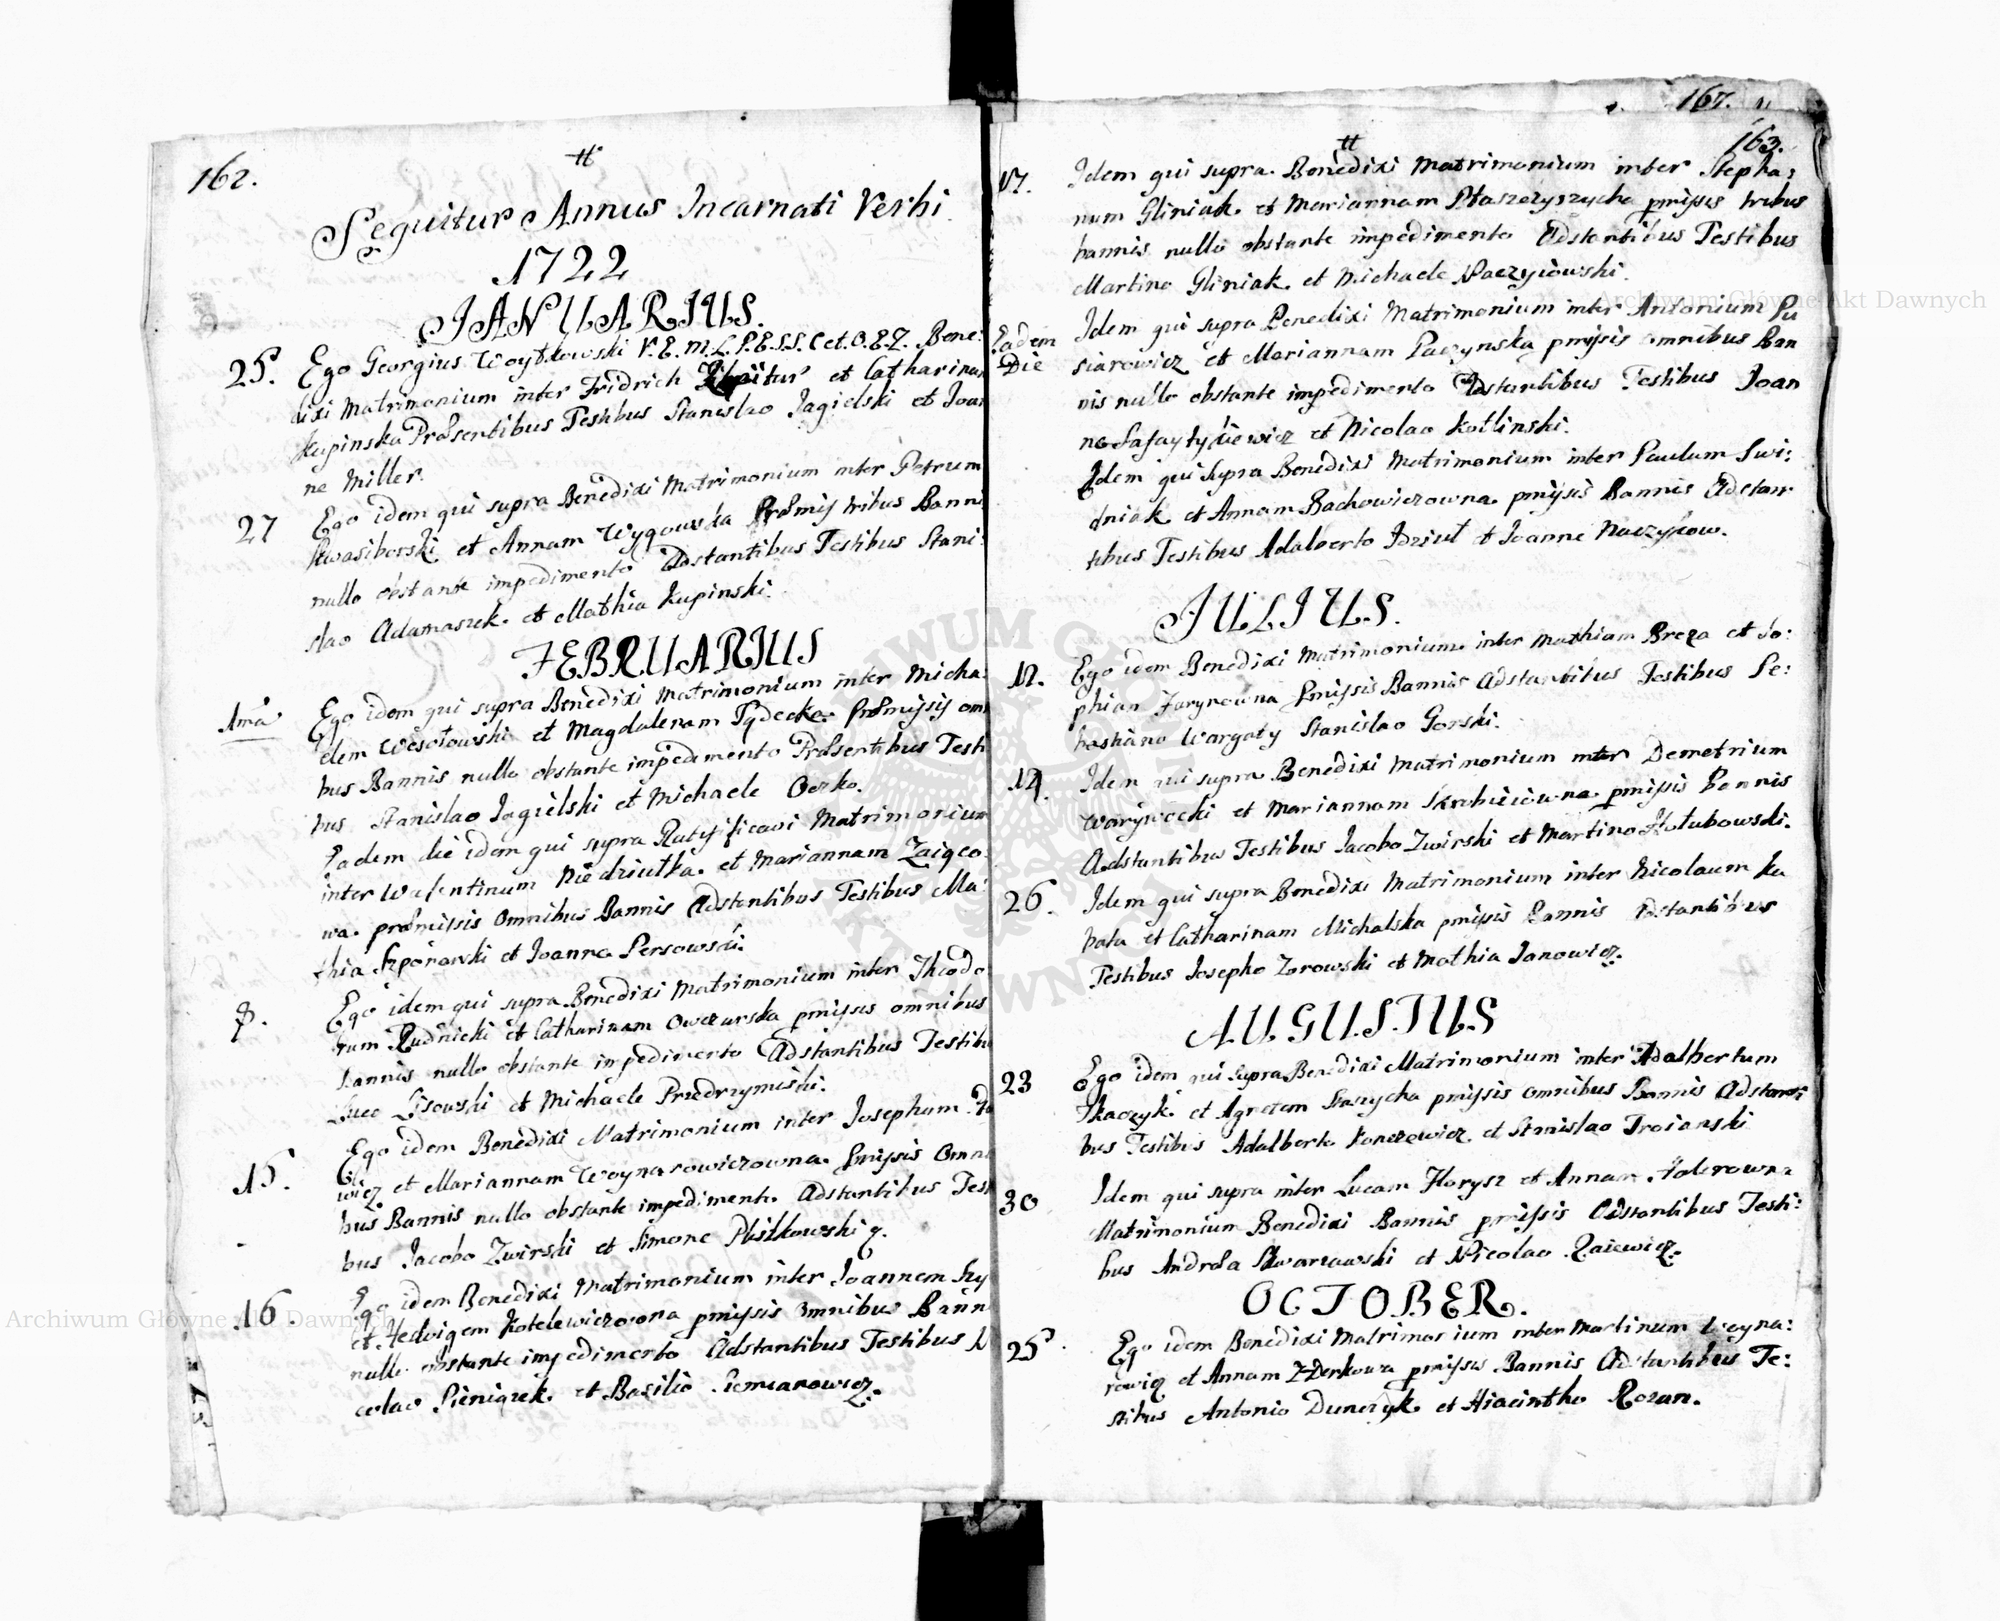 162.
#
Sequitur Annus Incarnati Verbi
1722
JANUARIUS.
25. Ego Georgius Woytkowski V.E.M.L.P.E.S.S.C et.O.E.Z. Bene:
dixi Matrimonium inter Fridrich et Catharinam
Kupinska Præsentibus Testibus Stanislao Jagielski et Joan
ne Miller.
27 Ego idem qui supra Benedixi Matrimonium inter Petrum
Kwasiborski et Annam Wygowska Præmis tribus Banni
nullo obstante impedimento Adstantibus Testibus Stani:
slao Adamaszek. et Mathia Kupinski.
FEBRUARIUS
1ma Ego idem qui supra Benedixi Matrimonium inter Micha:
elem Wesołowski et Magdalenam Præmissis om
bus Bannis nullo obstante impedimento Præsentibus Testi
bus Stanislao Jagielski et Michaele Oczko.
Eadem die idem qui supra Ratyficavi Matrimonium
inter Walentinum Niedziułka. et Mariannam Zaiąco
wa. præmissis Omnibus Bannis Adstantibus Testibus Ma:
thia et Joanne Persowski.
8. Ego idem qui supra Benedixi Matrimonium inter Theodo
rum Rudnicki et Catharinam Owczarska pmissis omnibus
bannis nullo obstante impedimento Adstantibus Testibu
Luca Lisowski et Michaele
15. Ego idem Benedixi Matrimonium inter Josephum
wicz et Mariannam Woynarowiczowna. pmissis Omni
bus Bannis nullo obstante impedimento. Adstantibus Test
bus Jacobo Zwirski et Simone
16. Ego idem Benedixi Matrimonium inter Joannem Szy
et. Hedvigem Kotelewiczowna pmissis omnibus Bann
nullo obstante impedimento Adstantibus Testibus N
colao Pieniązek. et Basilio
167.
163.
#
17. Idem qui supra. Benedixi Matrimonium inter Stepha:
num Gliniak. et Mariannam pmissis tribus
bannis nullo obstante impedimento Adstantibus Testibus
Martino Gliniak. et Michaele
Eadem Die Idem qui supra Benedixi Matrimonium inter Antonium Pu
siarewicz et Mariannam Paczynska pmissis omnibus Ban
nis nullo obstante impedimento Adstantibus Testibus Joan
ne et Nicolao Kotlinski.
Idem qui supra Benedixi Matrimonium inter Paulum Swi:
dniak et Annam Bachowiczowna. pmissis Bannis Adstan
tibus Testibus Adalberto et Joanne
JULIUS.
12. Ego idem Benedixi Matrimonium inter Mathiam Breza et So:
phian pmissis Bannis Adstantibus Testibus Se:
bastiano Wargaty Stanislao Gorski.
12. Idem qui supra Benedixi Matrimonium inter Demetrium
et Mariannam pmissis Bannis
Adstantibus Testibus Jacobo Zwirski et Martino Hołubowski.
26. Idem qui supra Benedixi Matrimonium inter Nicolaum Ka
bata et Catharinam Michalska pmissis Bannis Adstantibus
Testibus Josepho Zorowski et Mathia Janowicz.
AUGUSTUS
23 Ego idem qui supra Benedixi Matrimonium inter Adalbertum
Tkaczyk et Agnetem pmissis omnibus Bannis Adstanti
bus Testibus Adalberto Koncewicz et Stanislao Troianski
30 Idem qui supra inter Lucam Florysz et Annam
Matrimonium Benedixi Bannis pmissis Adstantibus Testi:
bus Andrea et Nicolao Zaiewicz.
OCTOBER.
25. Ego idem Benedixi Matrimonium inter Martinum Woyna:
rowicz et Annam pmissis Bannis Adstantibus Te:
stibus Antonio Dunczyk et Hiacintho Rozan.
Archiwum Główne Akt Dawnych
Archiwum Główne Akt Dawnych
ARCHIWUM GŁÓWNE AKT DAWNYCH